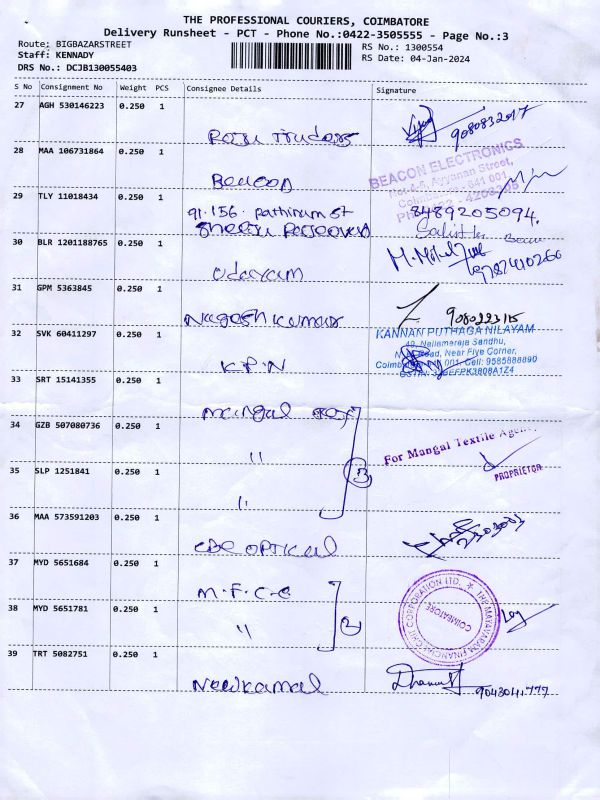 THE PROFESSIONAL COURIERS, COIMBATORE
Delivery Runsheet - PCT - Phone No.:0422-3505555 - Page No.:3
Route: BIGBAZARSTREET
Staff: KENNADY
DRS No.: DCJB130055403
RS No.: 1300554
RS Date: 04-Jan-2024
S No Consignment No Weight PCS Consignee Details Signature
27 AGH 530146223 0.250 1
Raju Traders 9080832017
28 MAA 106731864 0.250 1
Beacon
BEACON ELECTRONICS
Ayyanan Street,
641 001
29 TLY 11018434 0.250 1
91.156. Pathiram st 8489205094.
30 BLR 1201188765 0.250 1
Udayam
31 GPM 5363845 0.250 1
Nagesh kumar
32 SVK 60411297 0.250 1
K.P.N
KANNAN PUTHAGA NILAYAM
49, Nallamaraja Sandhu,
Road, Near Five Corner,
001, Cell: 9585688890
33 SRT 15141355 0.250 1
Mangal
34 GZB 507080736 0.250 1
"
For Mangal Textile
PROPRIETOR
35 SLP 1251841 0.250 1
" 3
36 MAA 573591203 0.250 1
CBE OPTICAL
37 MYD 5651684 0.250 1
M.F.C.C
38 MYD 5651781 0.250 1
" 2
THE MAYAVARAM FINANCIAL CHIT CORPORATION LTD.
COIMBATORE
39 TRT 5082751 0.250 1
New kamal 9043041777